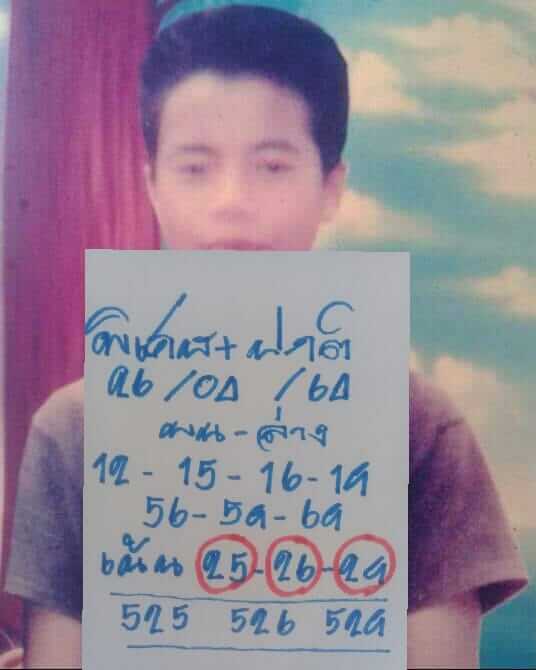 พิเศษ+ปกติ
26/04/64
บน-ล่าง
12-15-16-19
56-59-69
เน้น 25-26-29
525 526 529